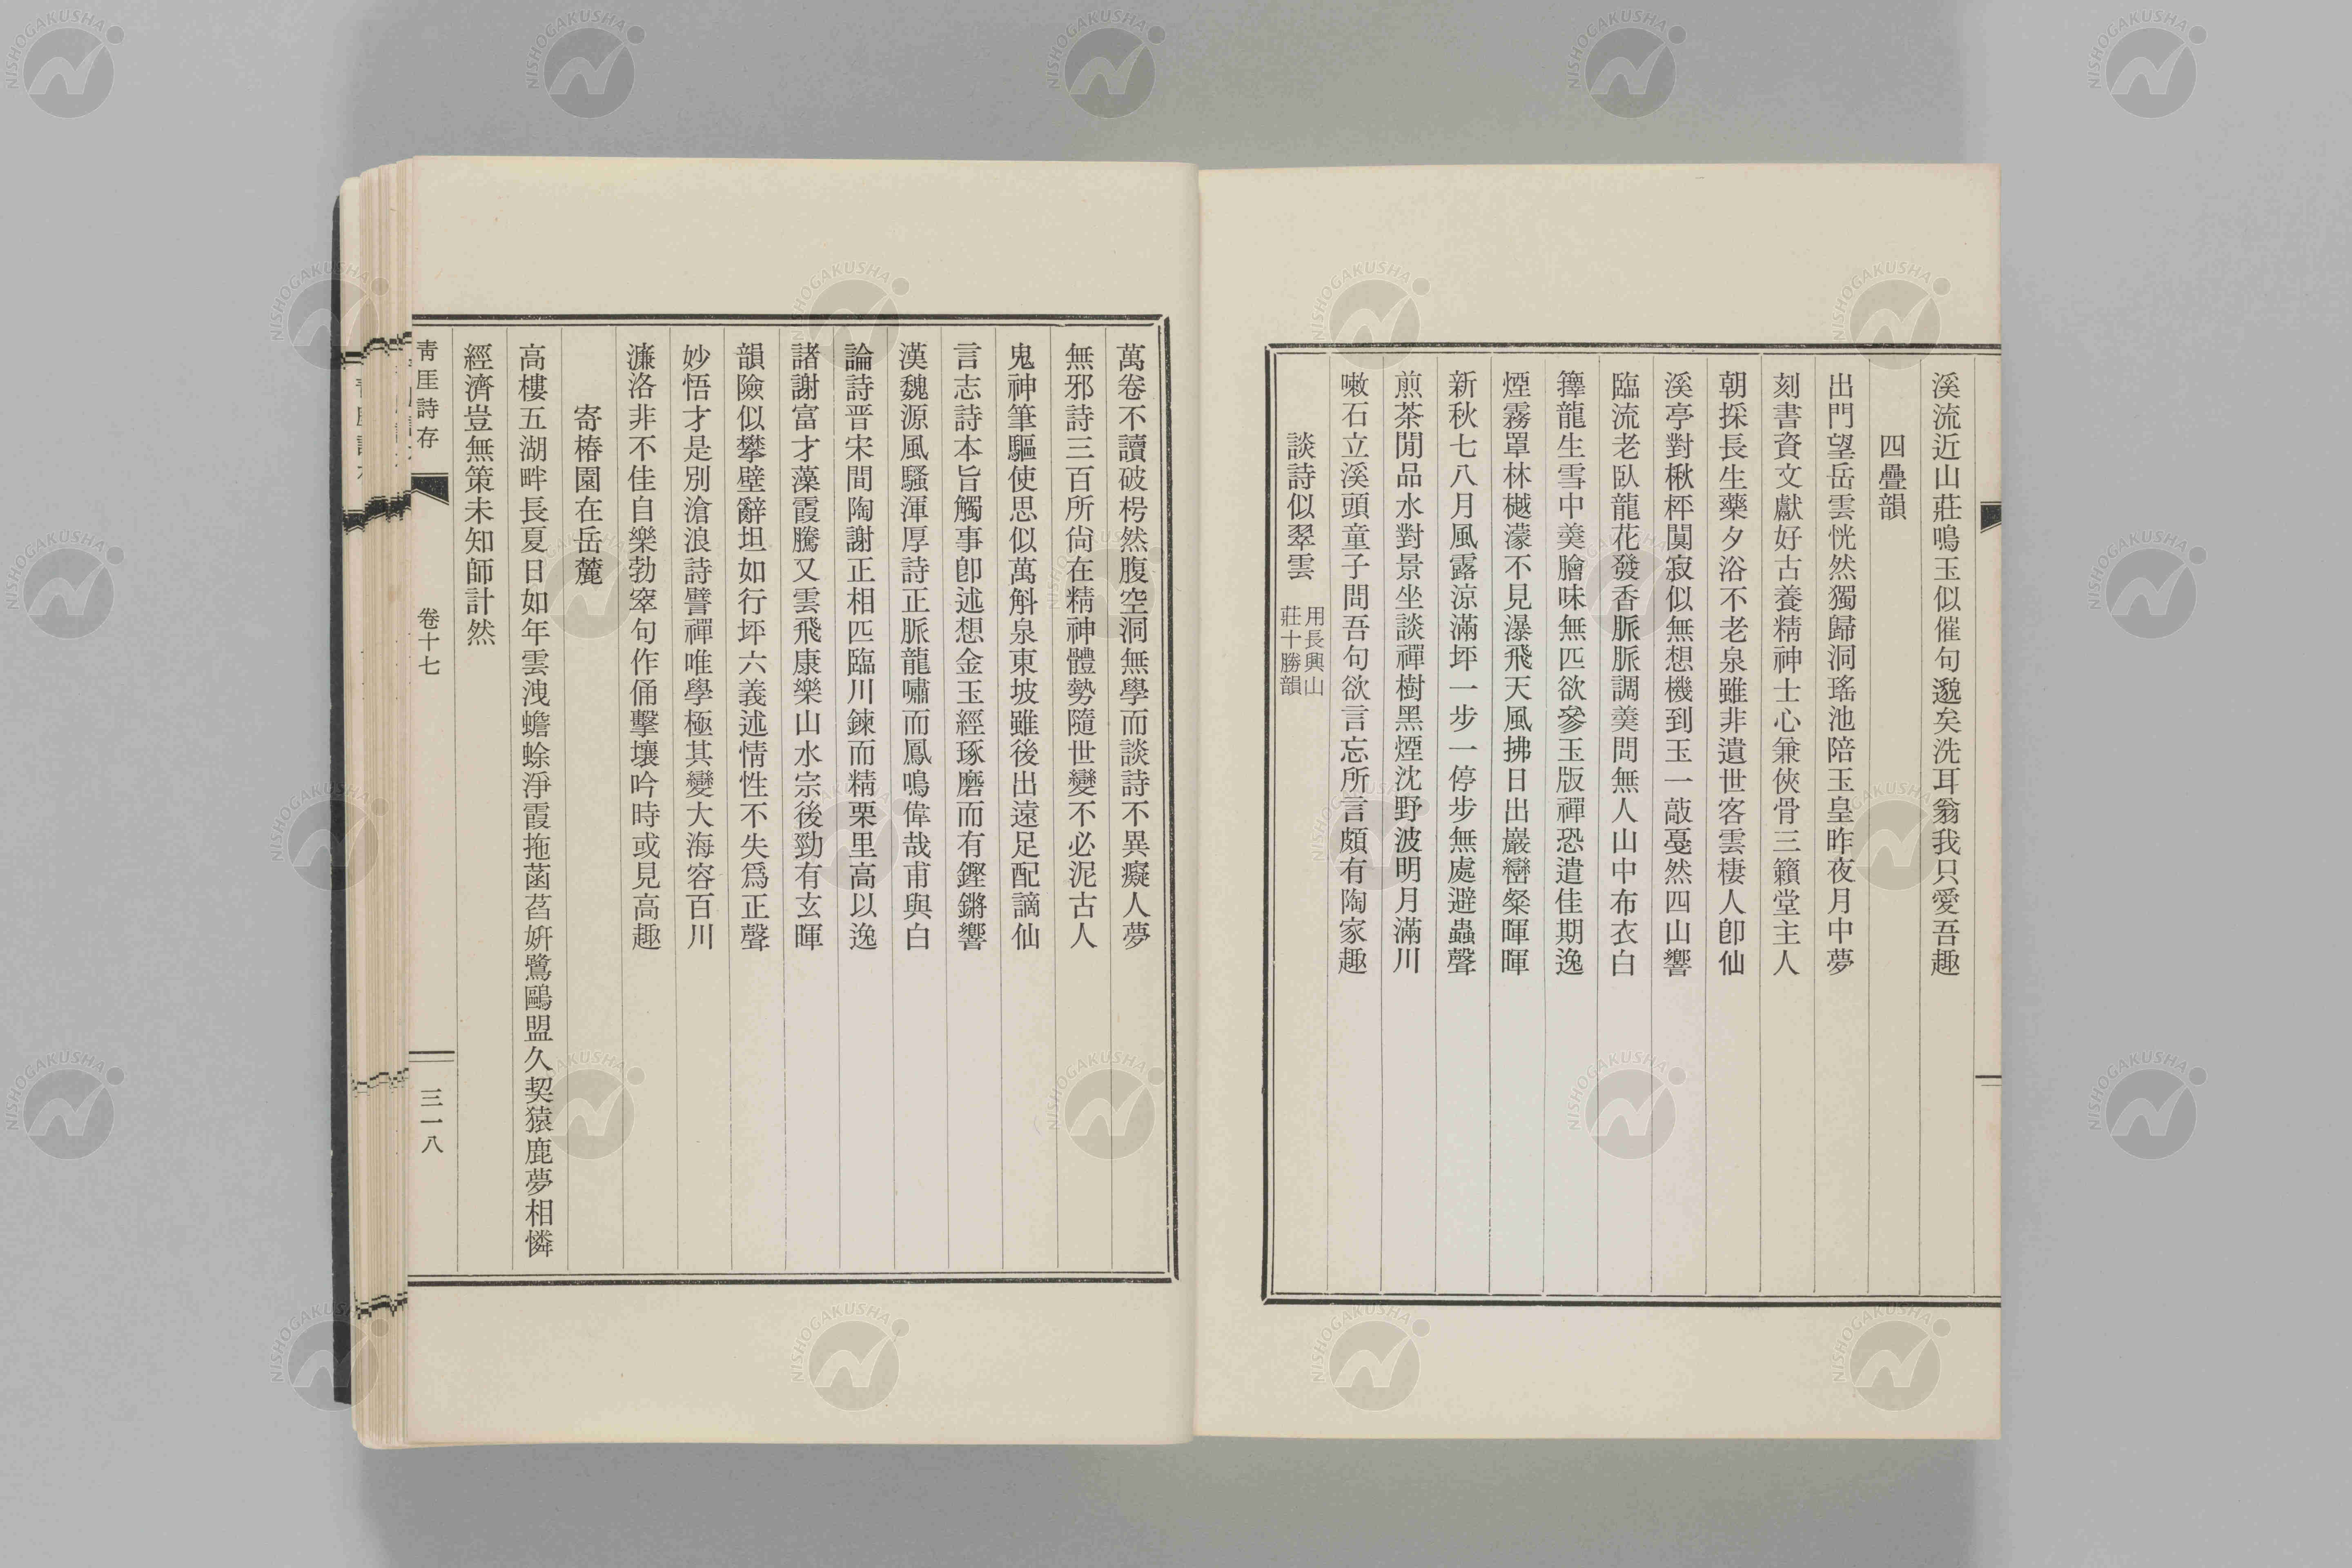 溪流近山莊鳴玉似催句邈矣洗耳翁我只愛吾趣
四疊韻
出門望岳雲恍然獨歸洞瑤池陪玉皇昨夜月中夢
刻書資文獻好古養精神士心兼俠骨三籟堂主人
朝採長生藥夕浴不老泉雖非遺世客雲棲人卽仙
溪亭對楸枰闃寂似無想機到玉一敲戞然四山響
臨流老臥龍花發香脈脈調羹問無人山中布衣白
籜龍生雪中羹膾味無匹欲參玉版禪恐遣佳期逸
煙霧罩林樾濛不見瀑飛天風拂日出巖巒粲暉暉
新秋七八月風露涼滿坪一步一停步無處避蟲聲
煎茶閒品水對景坐談禪樹黑煙沈野波明月滿川
嗽石立溪頭童子問吾句欲言忘所言頗有陶家趣
談詩似翠雲 用長興山莊十勝韻
萬卷不讀破枵然腹空洞無學而談詩不異癡人夢
無邪詩三百所尙在精神體勢隨世變不必泥古人
鬼神筆驅使思似萬斛泉東坡雖後出遠足配謫仙
言志詩本旨觸事卽述想金玉經琢磨而有鏗鏘響
漢魏源風騷渾厚詩正脈龍嘯而鳳鳴偉哉甫與白
論詩晋宋間陶謝正相匹臨川鍊而精栗里高以逸
諸謝富才藻霞騰又雲飛康樂山水宗後勁有玄暉
韻險似攀壁辭坦如行坪六義述情性不失爲正聲
妙悟才是別滄浪詩譬禪唯學極其變大海容百川
濂洛非不佳自樂勃窣句作俑擊壤吟時或見高趣
寄椿園在岳麓
高樓五湖畔長夏日如年雲洩蟾蜍淨霞拖菡萏姸鷺鷗盟久契猿鹿夢相憐
經濟豈無策未知師計然
靑厓詩存
卷十七
三一八